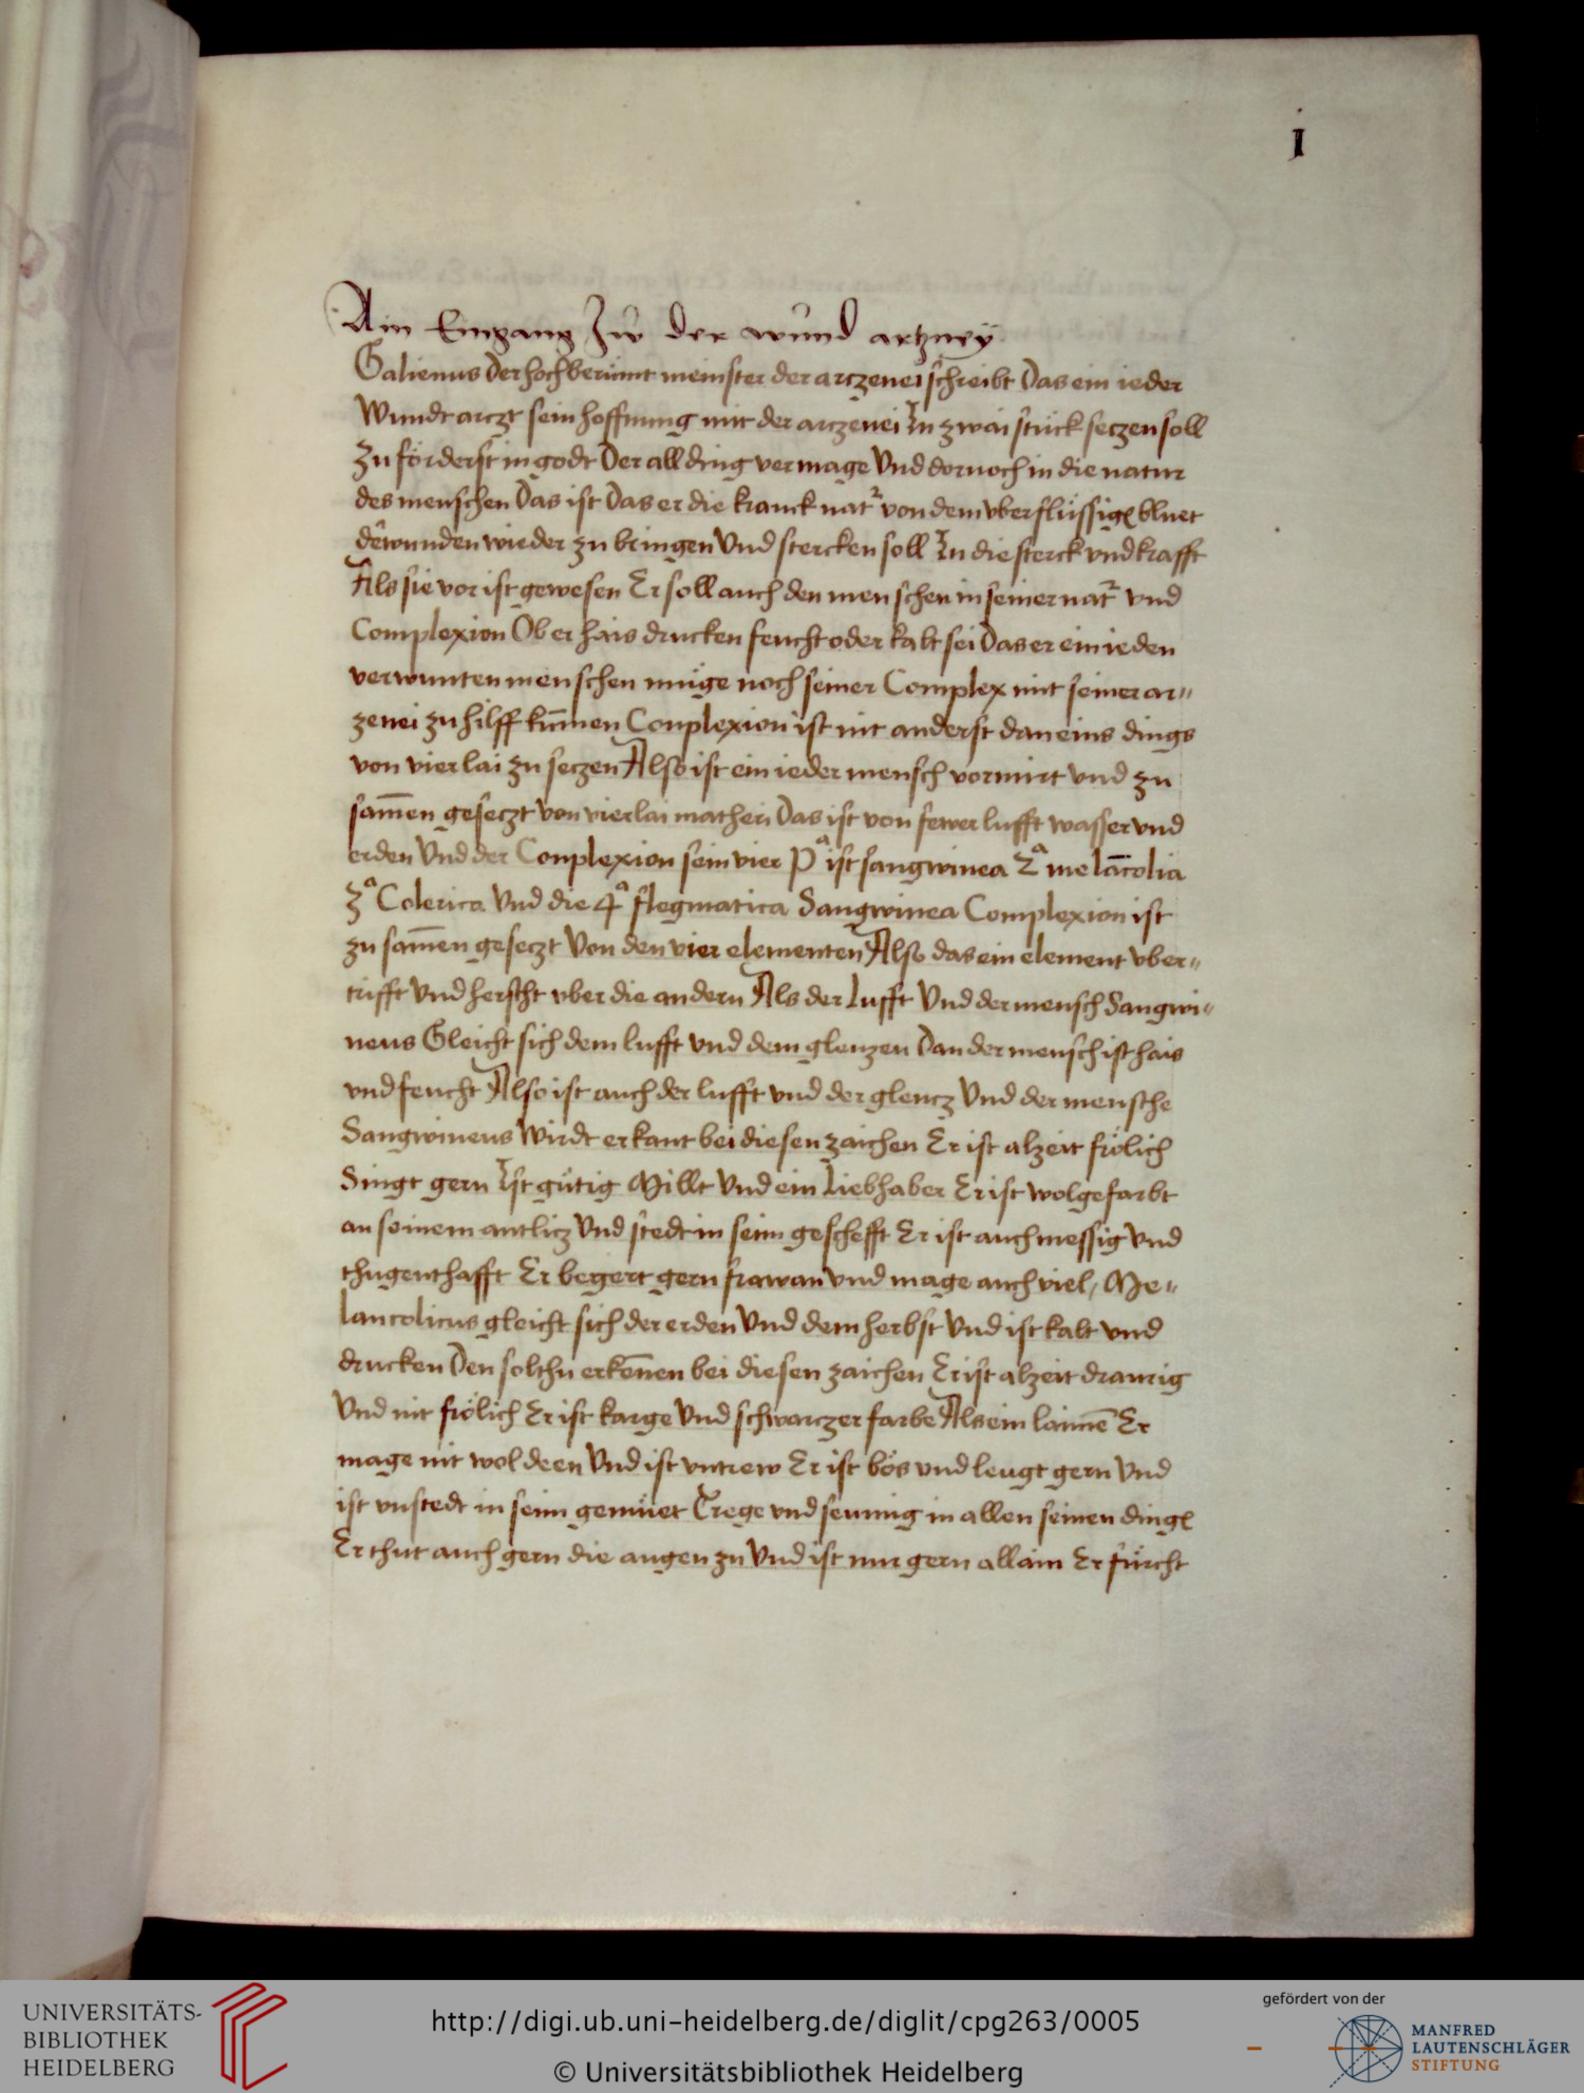 i
Ain Eingang Zů der wund artzney
Galienus der hochberümt meinster der arczenei schreibt Das ein ieder
Wundt arczt sein hoffnung mit der arczenei In zwai stück seczen soll
Zu förderst in godt Der all ding vermage Vnd dornoch in die natur
des menschen Das ist Das er die kranck nat² von dem vberflüssigen bluet
der wunden wieder zu bringen Vnd stercken soll In die sterck vnd krafft
Als sie vor ist gewesen Er soll auch den menschen in seiner nat² vnd
Complexion Ob er hais drucken feucht oder kalt sei Das er ein ieden
verwunten menschen müge noch seiner Complex mit seiner ar„
zenei zu hilff kūmen Conplexion ist nit anderst dan eins dings
von vierlai zu seczen Also ist ein ieder mensch vormirt vnd zu
sam̄en geseczt von vierlai matheri Das ist von fewer lufft wasser vnd
erden Vnd der Conplexion sein vier Pᵃ ist sangwinea 2ᵃ melācolia
3ᵃ Colerica Vnd die 4ᵃ flegmatica Sangwinea Complexion ist
zu sam̄en geseczt Von den vier elementen Also das ein element vber„
trifft Vnd herscht vber die andern Als der Lufft Vnd der mensch Sangwi„
neus Gleicht sich dem lufft vnd dem glenzen Dan der mensch ist hais
vnd feucht Also ist auch der lufft vnd der glencz Vnd der mensche
Sangwineus Wirdt erkant bei diesen zaichen Er ist alzeit frölich
Singt gern Ist gütig Millt Vnd ein Liebhaber Er ist wolgefarbt
an seinem antlicz Vnd stedt in seim geschefft Er ist auch messig Vnd
thugenthafft Er begert gern frawan vnd mage auch viel, Me„
lancolicus gleicht sich der erden Vnd dem herbst Vnd ist kalt vnd
drucken Den solthu erkēnen bei diesen zaichen Er ist alzeit draurig
Vnd nit frölich Er ist karge Vnd schwarczer farbe Als ein laimē Er
mage nit wol deen Vnd ist vntrew Er ist bös vnd leugt gern Vnd
ist vnstedt in seim gemüet Trege vnd seumig in allen seinen dingen
Er thut auch gern die augen zu Vnd ist nur gern allain Er fürcht
UNIVERSITÄTS-
BIBLIOTHEK
HEIDELBERG
http://digi.ub.uni-heidelberg.de/diglit/cpg263/0005
© Universitätsbibliothek Heidelberg
gefördert von der
MANFRED
LAUTENSCHLÄGER
STIFTUNG